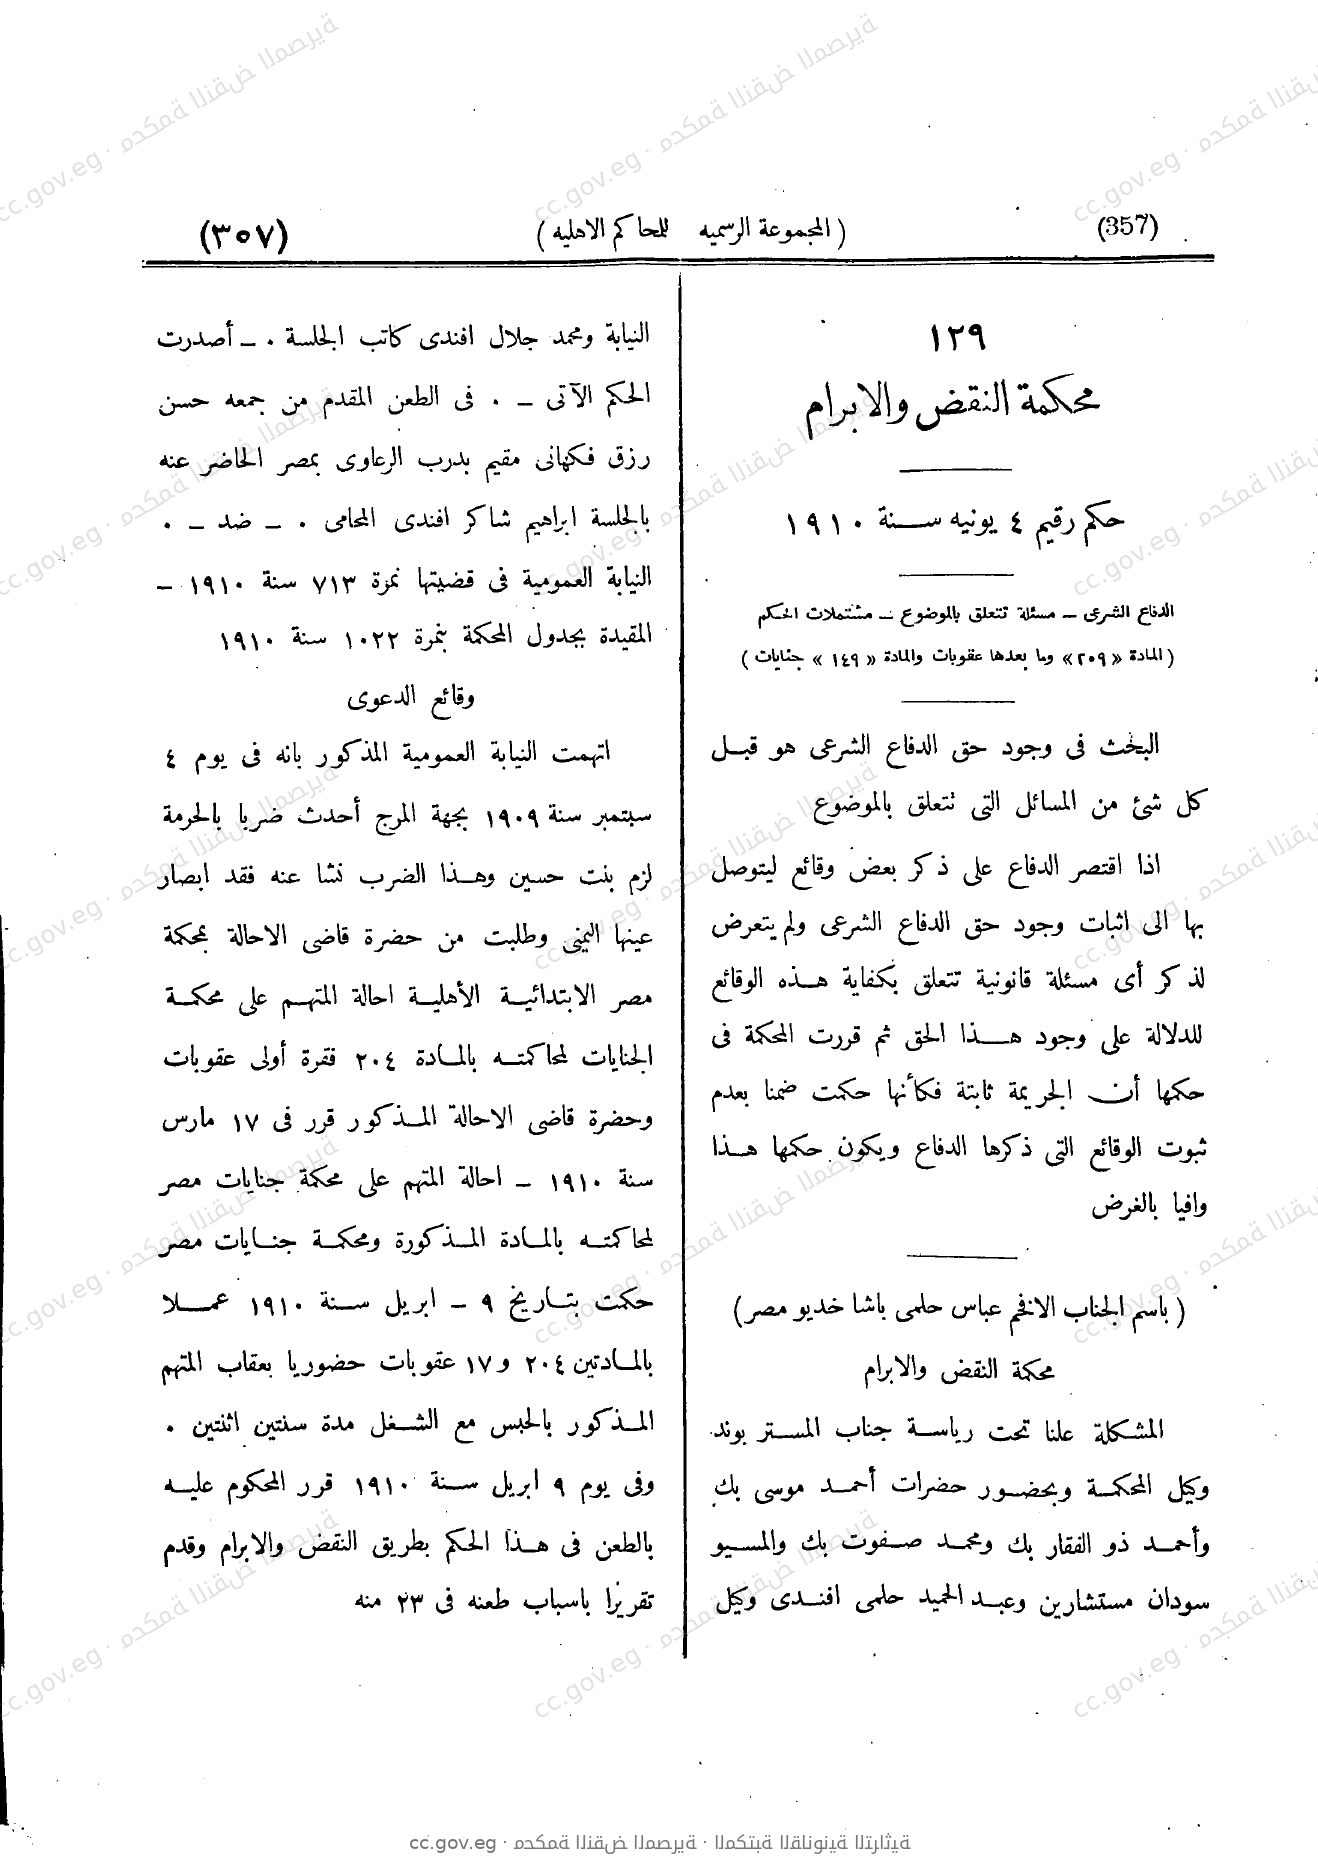 (357)
( المجموعة الرسميه للمحاكم الاهليه )
(٣٥٧)
١٢٩
محكمة النقض والابرام
حكم رقيم ٤ يونيه سنة ١٩١٠
الدفاع الشرعى – مسئلة تتعلق بالموضوع – مشتملات الحكم
( المادة « ٢٠٩» وما بعدها عقوبات والمادة « ١٤٩ » جنايات )
البحث فى وجود حق الدفاع الشرعى هو قبل
كل شئ من المسائل التى تتعلق بالموضوع
اذا اقتصر الدفاع على ذكر بعض وقائع ليتوصل
بها الى اثبات وجود حق الدفاع الشرعى ولم يتعرض
لذكر أى مسئلة قانونية تتعلق بكفاية هذه الوقائع
للدلالة على وجود هذا الحق ثم قررت المحكمة فى
حكمها أن الجريمة ثابتة فكأنها حكمت ضمنا بعدم
ثبوت الوقائع التى ذكرها الدفاع ويكون حكمها هذا
وافيا بالغرض
( باسم الجناب الافخم عباس حلمى باشا خديو مصر )
محكمة النقض والابرام
المشكلة علنا تحت رياسة جناب المستر بوند
وكيل المحكمة وبحضور حضرات أحمد موسى بك
وأحمد ذو الفقار بك ومحمد صفوت بك والمسيو
سودان مستشارين وعبد الحميد حلمى افندى وكيل
النيابة ومحمد جلال افندى كاتب الجلسة . – أصدرت
الحكم الآتى – . فى الطعن المقدم من جمعه حسن
رزق فكهانى مقيم بدرب الرعاوى بمصر الحاضر عنه
بالجلسة ابراهيم شاكر افندى المحامى . – ضد – .
النيابة العمومية فى قضيتها نمزة ٧١٣ سنة ١٩١٠ –
المقيدة بجدول المحكمة بنمرة ١٠٢٢ سنة ١٩١٠
وقائع الدعوى
اتهمت النيابة العمومية المذكور بانه فى يوم ٤
سبتمبر سنة ١٩٠٩ بجهة المرج أحدث ضربا بالحرمة
لزم بنت حسين وهذا الضرب نشا عنه فقد ابصار
عينها اليمنى وطلبت من حضرة قاضى الاحالة بمحكمة
مصر الابتدائية الأهلية احالة المتهم على محكمة
الجنايات لمحاكمته بالمادة ٢٠٤ فقرة أولى عقوبات
وحضرة قاضى الاحالة المذكور قرر فى ١٧ مارس
سنة ١٩١٠ – احالة المتهم على محكمة جنايات مصر
لمحاكمته بالمادة المذكورة ومحكمة جنايات مصر
حكمت بتاريخ ٩ – ابريل سنة ١٩١٠ عملا
بالمادتين ٢٠٤ و١٧ عقوبات حضوريا بعقاب المتهم
المذكور بالحبس مع الشغل مدة سنتين اثنتين .
وفى يوم ٩ ابريل سنة ١٩١٠ قرر المحكوم عليه
بالطعن فى هذا الحكم بطريق النقض والابرام وقدم
تقريرا باسباب طعنه فى ٢٣ منه
cc.gov.eg · محكمة النقض المصرية · المكتبة القانونية التراثية